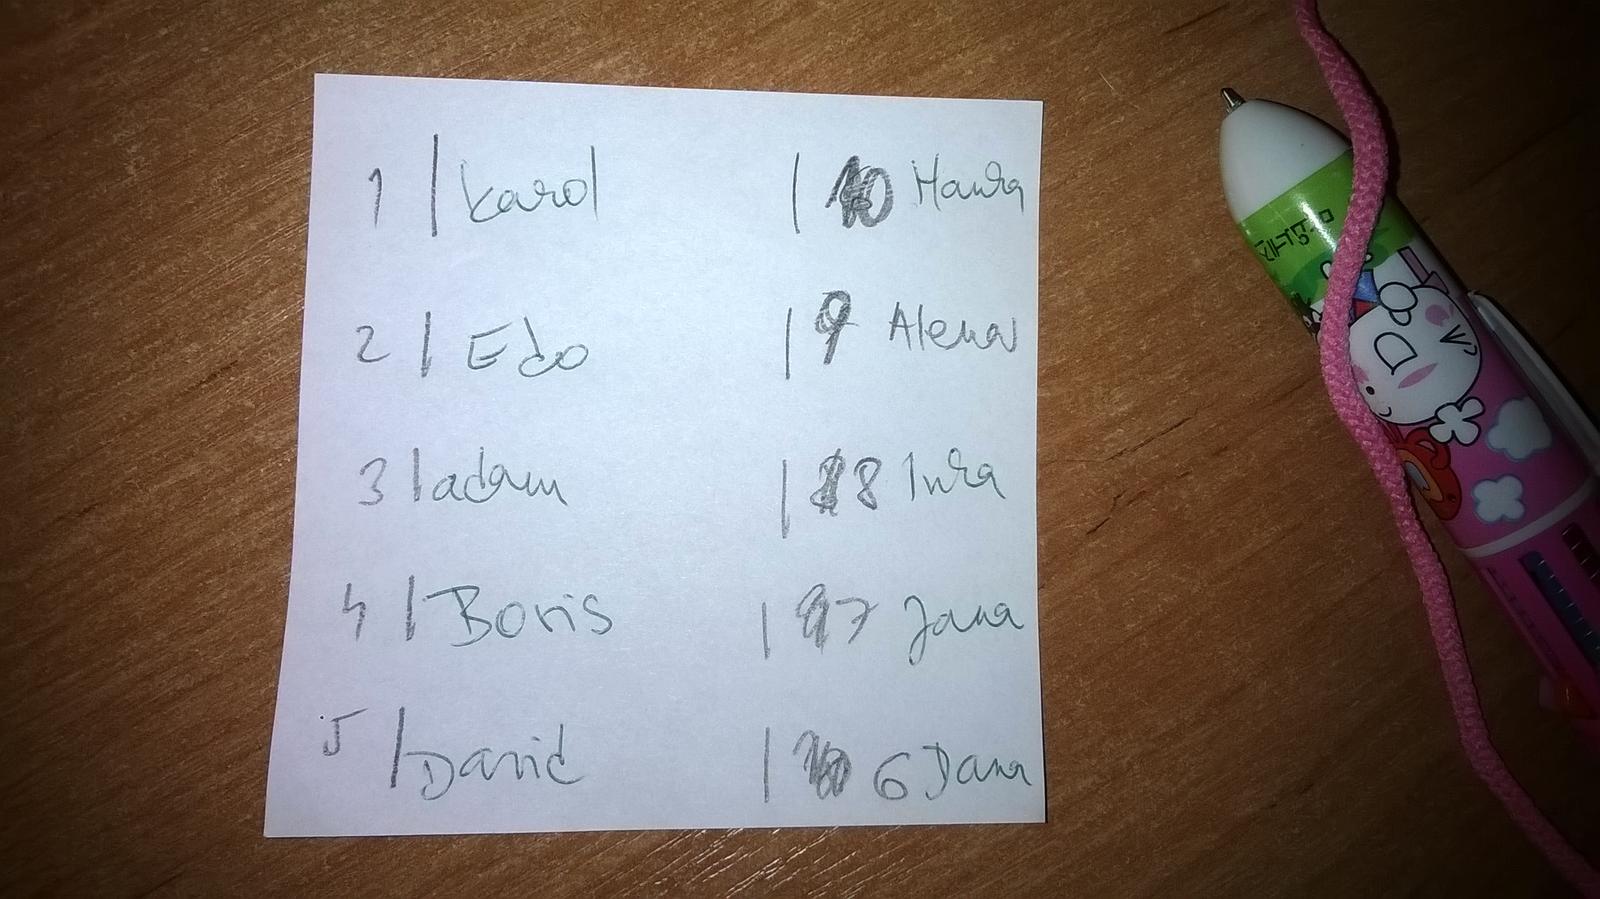 1 | Karol | 10 Hanka
2 | Edo | 9 Alena
3 | adam | 8 Inka
4 | Boris | 7 Jana
5 | David | 6 Dana